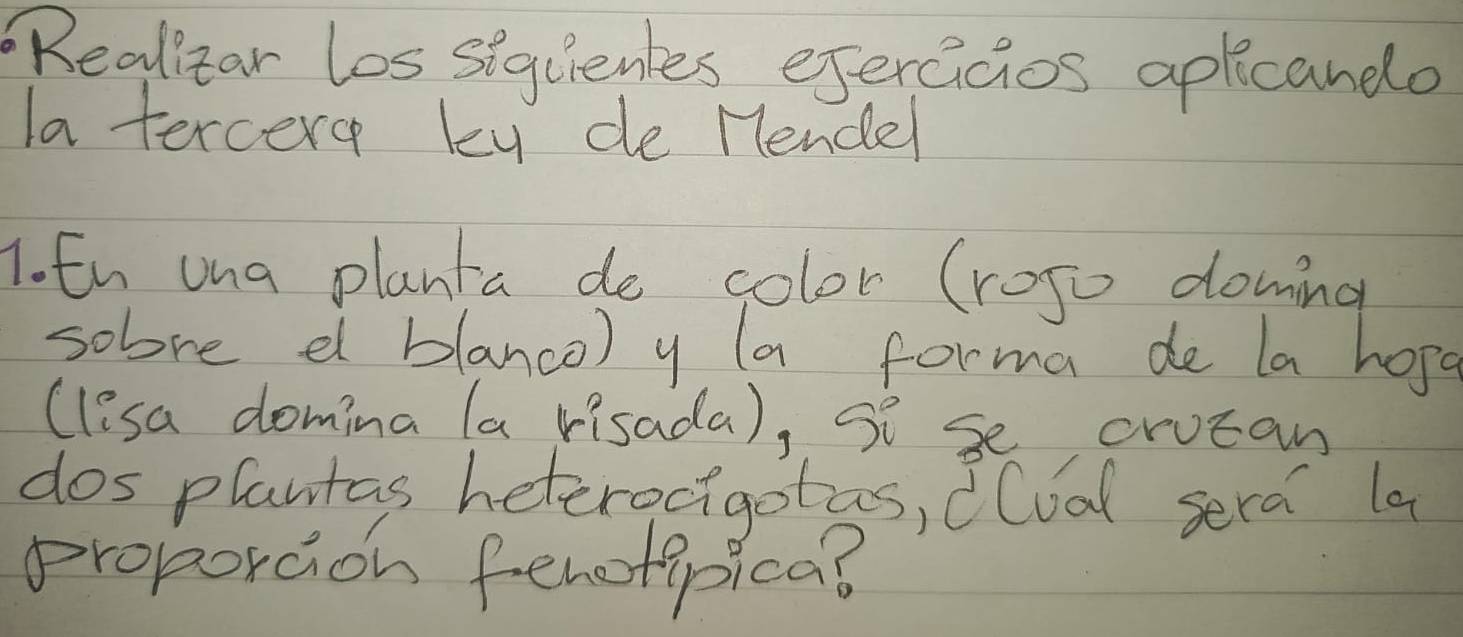 • Realizar los siguientes ejercicios aplicando
la tercera ley de Mendel
1. En una planta de color (rojo domina
sobre el blanco) y la forma de la hoja
(lisa domina la risada), si se cruzan
dos plantas heterocigotas, ¿Cuál será la
proporción fenotípica?